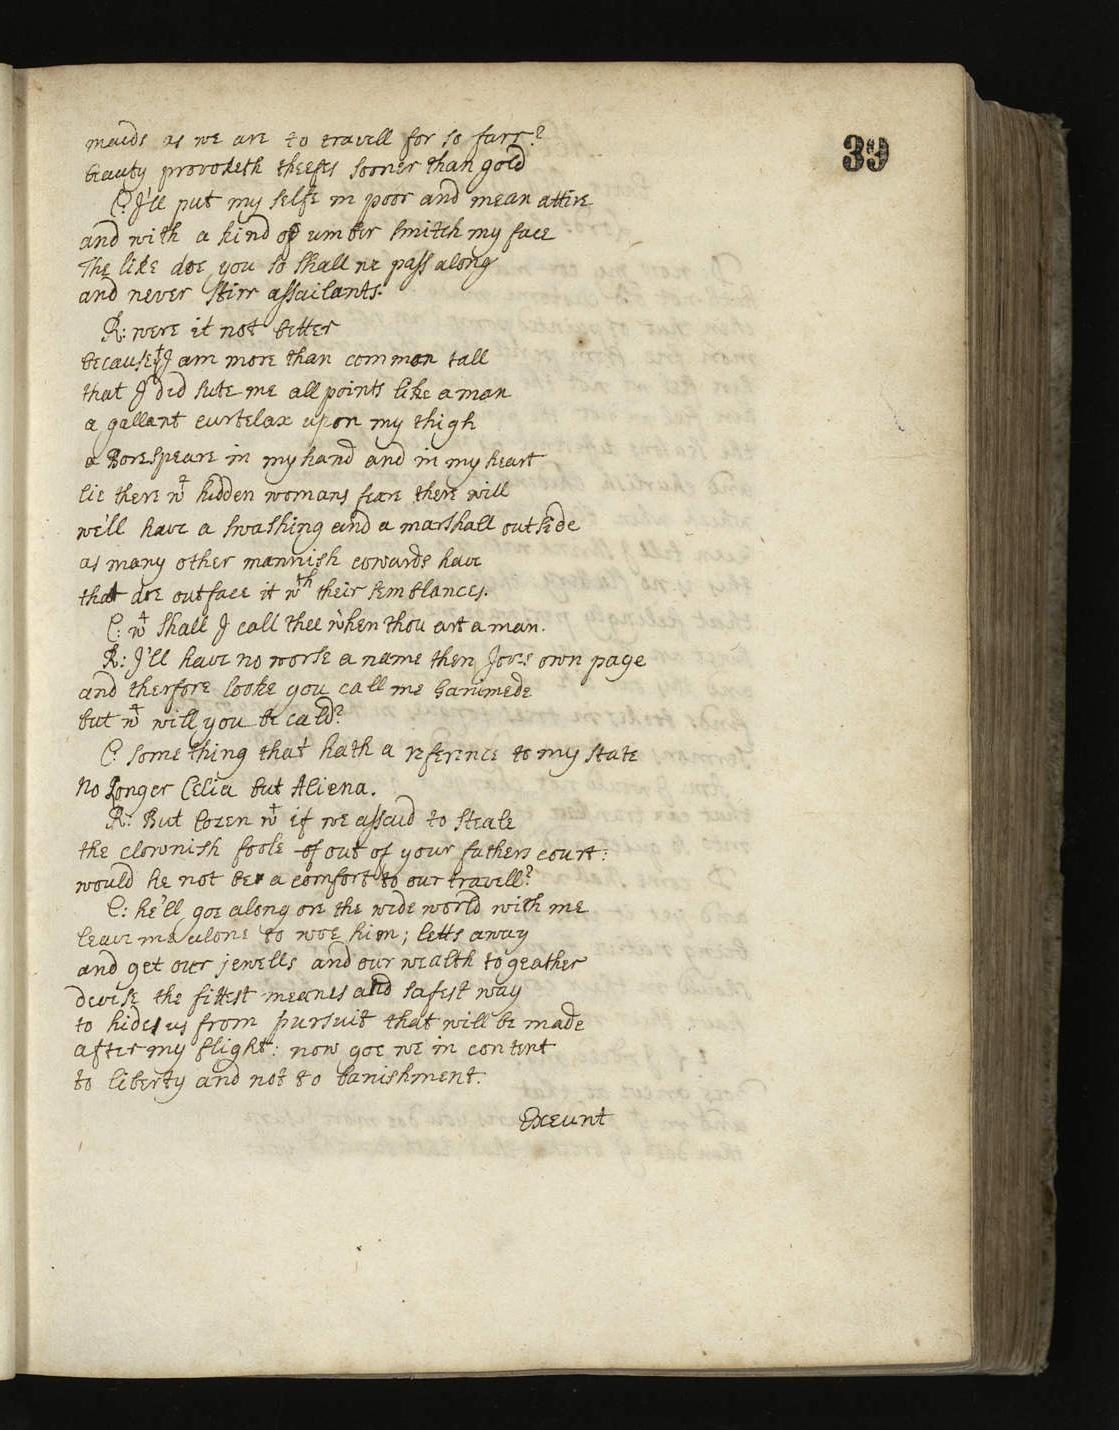 39
maids as we are to travell for so farr?
beauty provoketh theefes sooner than gold
C: I'll put my selfe in poor and mean attire
and with a kind of umber smitch my face
The like doe you so shall we pass along
and never stirr assailants.
R: were it not better
because yt I am more than common tall
that I did sute me all points like a man
a gallant curtelax upon my thigh
a Borespeare in my hand and in my heart
lie there wt hidden womans feare there will
we'll have a swashing and a marshall outside
as many other mannish cowards have
that doe outface it wth their semblances.
C: wt shall I call thee when thou art a man.
R: I'll have no worse a name then Joves own page
and therfore looke you call me Ganimede
but wt will you be cald?
C: something that hath a reference to my state
No Longer Celia but Aliena.
R: But Cozen wt if we assaid to steale
the clownish foole of out of your fathers court:
would he not be a comfort to our travell?
C: he'll goe along ore the wide world with me
leave me alone to woe him; letts away
and get our jewells and our wealth togeather
devise the fittest meanes and safest way
to hide us from pursuit that will be made
after my flight: now goe we in content
to liberty and not to banishment.
Exeunt